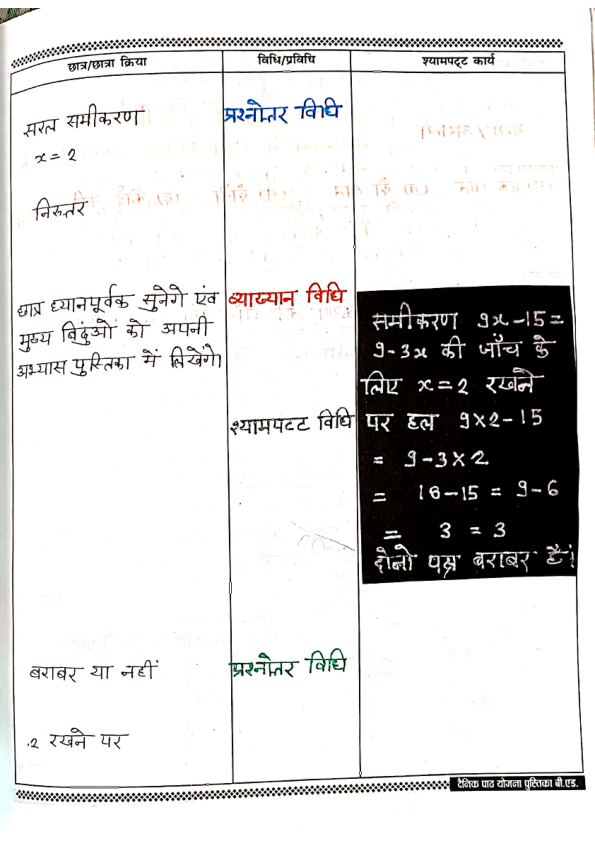 छात्र/छात्रा क्रिया
विधि/प्रविधि
श्यामपट्ट कार्य
सरल समीकरण
x = 2
प्रश्नोतर विधि
निरुतर
छात्र ध्यानपूर्वक सुनेगे एंव
मुख्य विदुंओं को अपनी
अभ्यास पुस्तिका में लिखेंगे।
व्याख्यान विधि
श्यामपटट विधि
समीकरण 9x-15=
9-3x की जाँच के
लिए x=2 रखने
पर हल 9x2-15
= 9-3x2
= 18-15 = 9-6
= 3 = 3
दोनो पक्ष बराबर है।
बराबर या नहीं
प्रश्नोतर विधि
.2 रखने पर
दैनिक पाठ योजना पुस्तिका बी.एड.